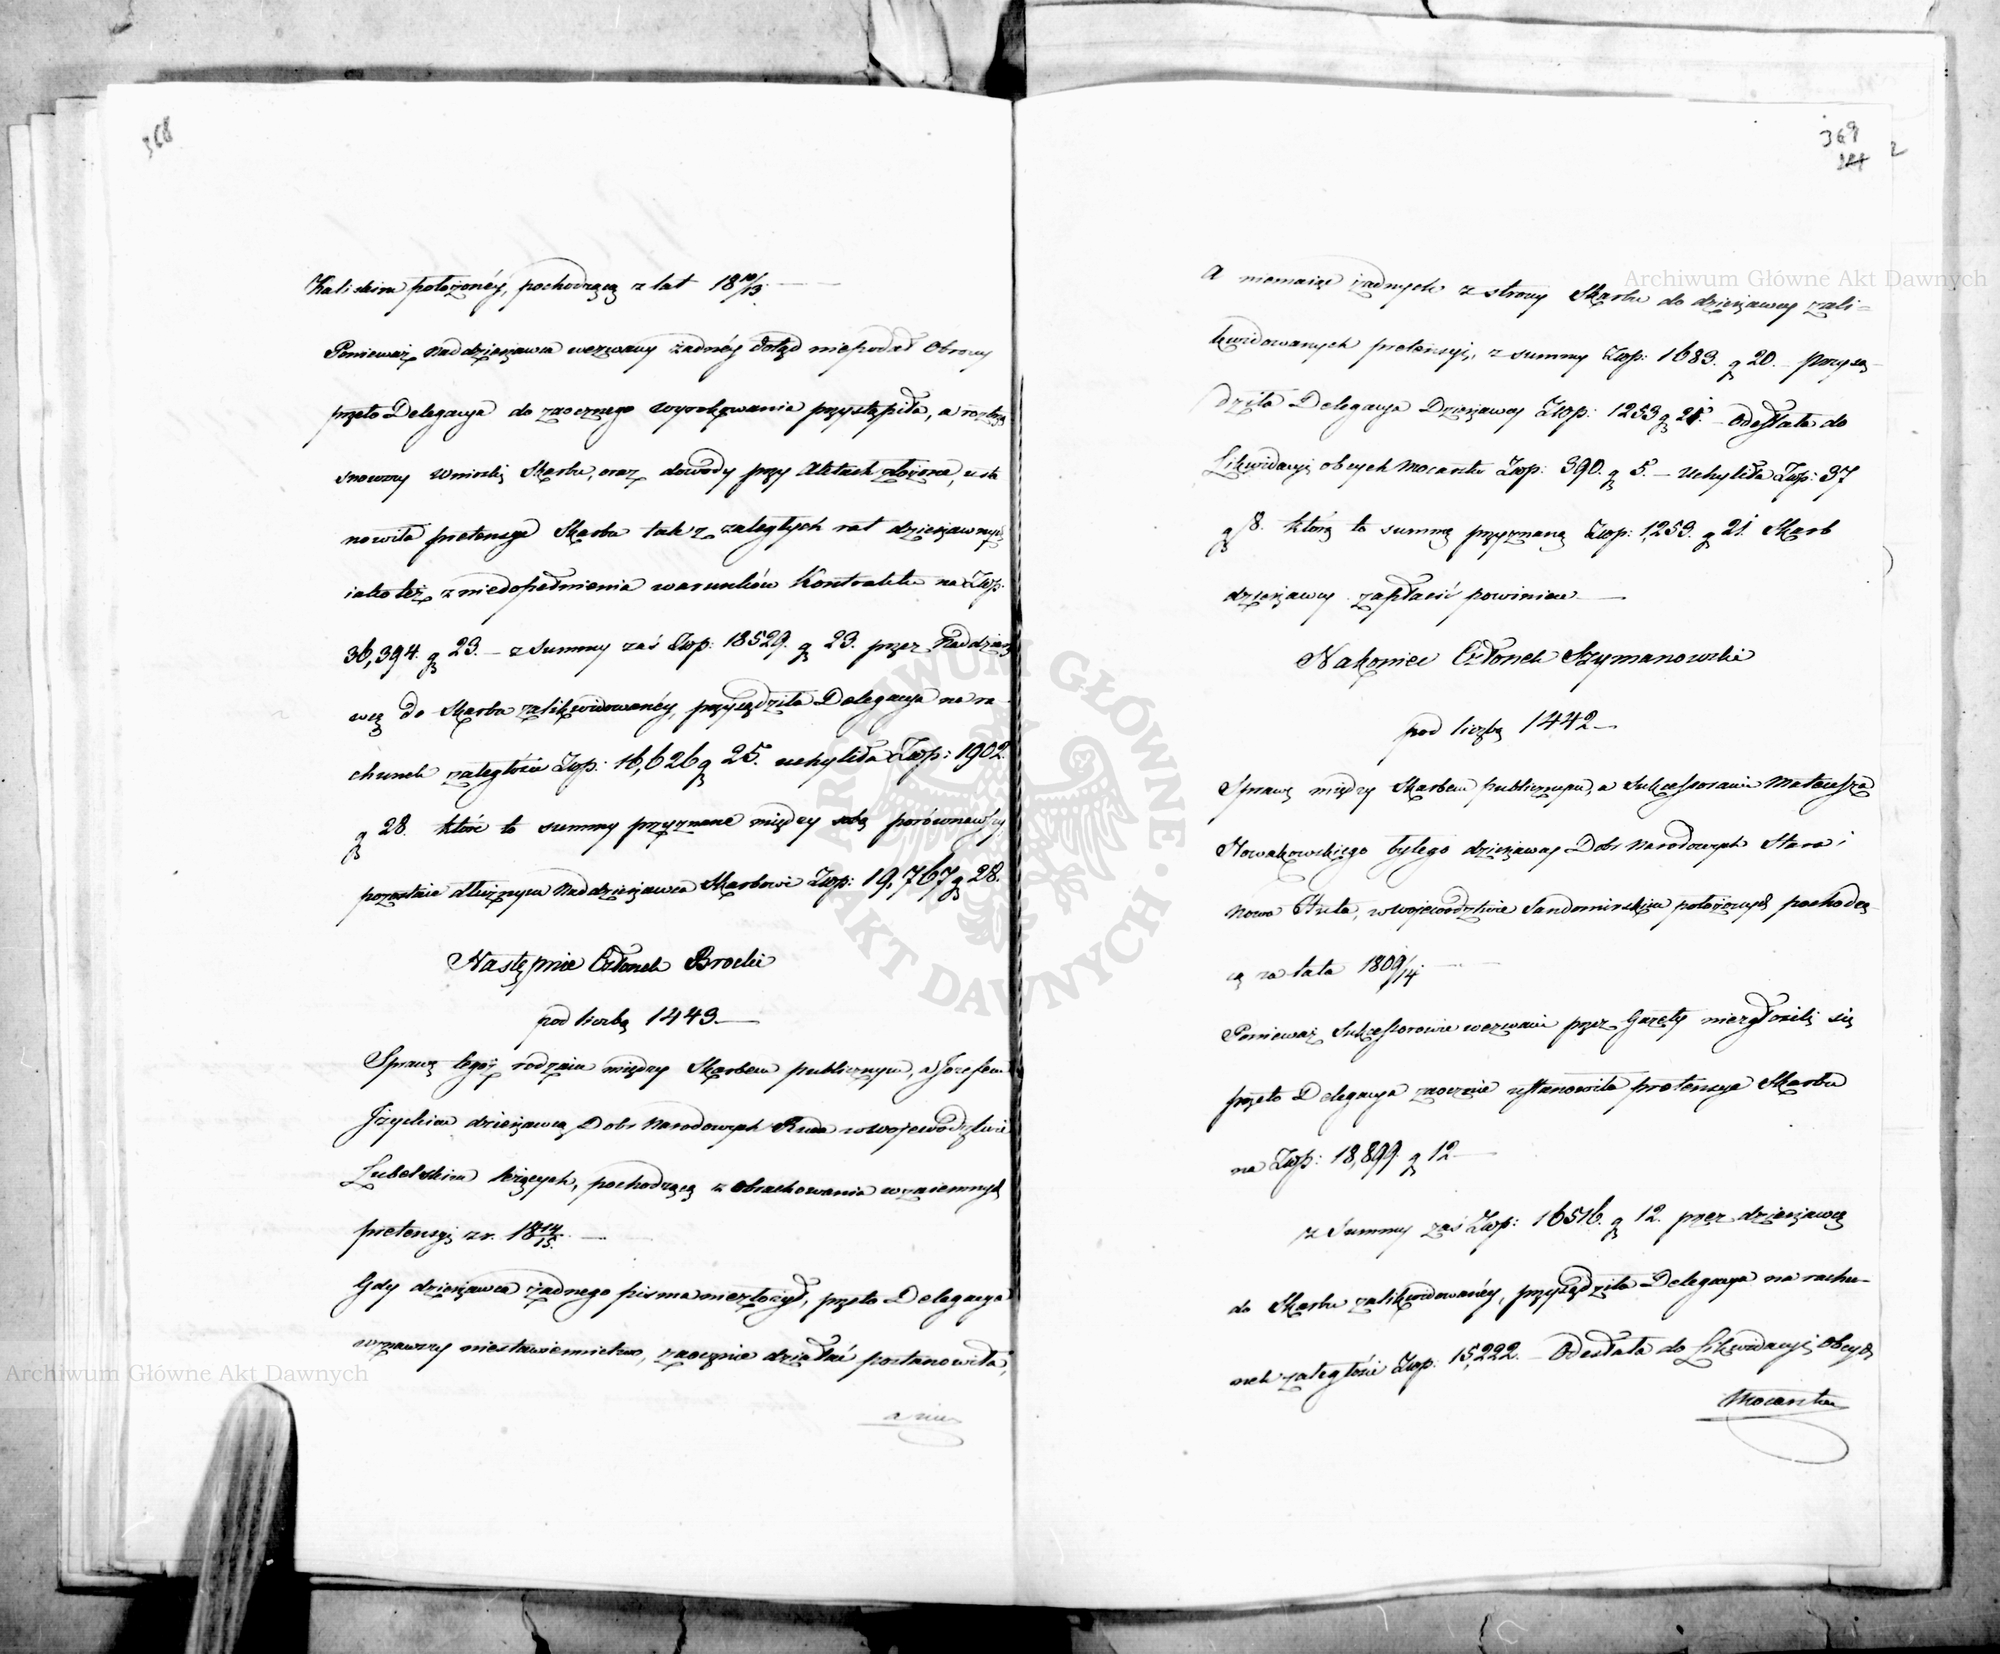 368
Kaliskim położonéy, pochodzącą z lat 18 10/13.
Ponieważ Naddzierżawca wezwany żadnéy dotąd niepodał Obrony
przeto Delegacya do zaocznego wyrokowania przystąpiła, a roztrzą
snąwszy Wnioski Skarbu, oraz dowody przy Aktach złożone, usta
nowiła pretensye Skarbu tak z zaległych rat dzierżawnych
iako też z niedopełnienia warunków Kontraktu na Złp:
36,394. g 23. – z Summy zaś Złp: 18529. g 23. przez Naddzierża
wcę do Skarbu zalikwidowanéy, przysądziła Delegacya na ra-
chunek zaległości Złp: 16,626 g 25. uchyliła Złp: 1902.
g 28. które to summy przyznane między sobą porównawszy,
pozostaie dłużnym Naddzierżawca Skarbowi Złp: 19,767 g 28.
Następnie Członek Brocki
pod liczbą 1443.
Sprawę tegoż rodzaiu między Skarbem publicznym, a Jozefem
Jżyckim dzierżawcą Dobr Narodowych Ruda w Wojewodztwie
Lubelskim leżących, pochodzącą z Obrachowania wzaiemnych
pretensyi z r. 18 14/15.
Gdy dzierżawca żadnego pisma niezłożył, przeto Delegacya
wznawszy niestawiennictwo, zaocznie działać postanowiła,
a nie
369
2
A niemaiąc żadnych z strony Skarbu do dzierżawcy zali=
kwidowanych pretensyi, z summy Złp: 1683. g 20. – przysą-
dziła Delegacya Dzierżawcy Złp: 1253 g 21. – Odesłała do
Likwidacyi obcych Mocarstw Złp: 390. g 5. – uchyliła Złp: 37
g 8. którą to summę przyznaną Złp: 1,253. g 21. Skarb
dzierżawcy zapłacić powinien
Nakoniec Członek Szymanowski
pod liczbą 1442
Sprawę między Skarbem publicznym, a Sukcessorami Mateusza
Nowakowskiego byłego dzierżawcy Dobr Narodowych Stara i
Nowa Huta, w Wojewodztwie Sandomirskim położonych pochodzą-
cą za lata 1809/14.
Ponieważ Sukcessorowie wezwani przez Gazety niezgłosili się
przeto Delegacya zaocznie ustanowiła pretensye Skarbu
na Złp: 18,899. g 12
z Summy zaś Złp: 16516. g 12. przez dzierżawcę
do Skarbu zalikwidowanéy, przysądziła Delegacya na rachu-
nek zaległości Złp: 15,222. – Odesłała do Likwidacyi Obcych
Mocarstw
Archiwum Główne Akt Dawnych
Archiwum Główne Akt Dawnych
ARCHIWUM GŁÓWNE · AKT DAWNYCH ·